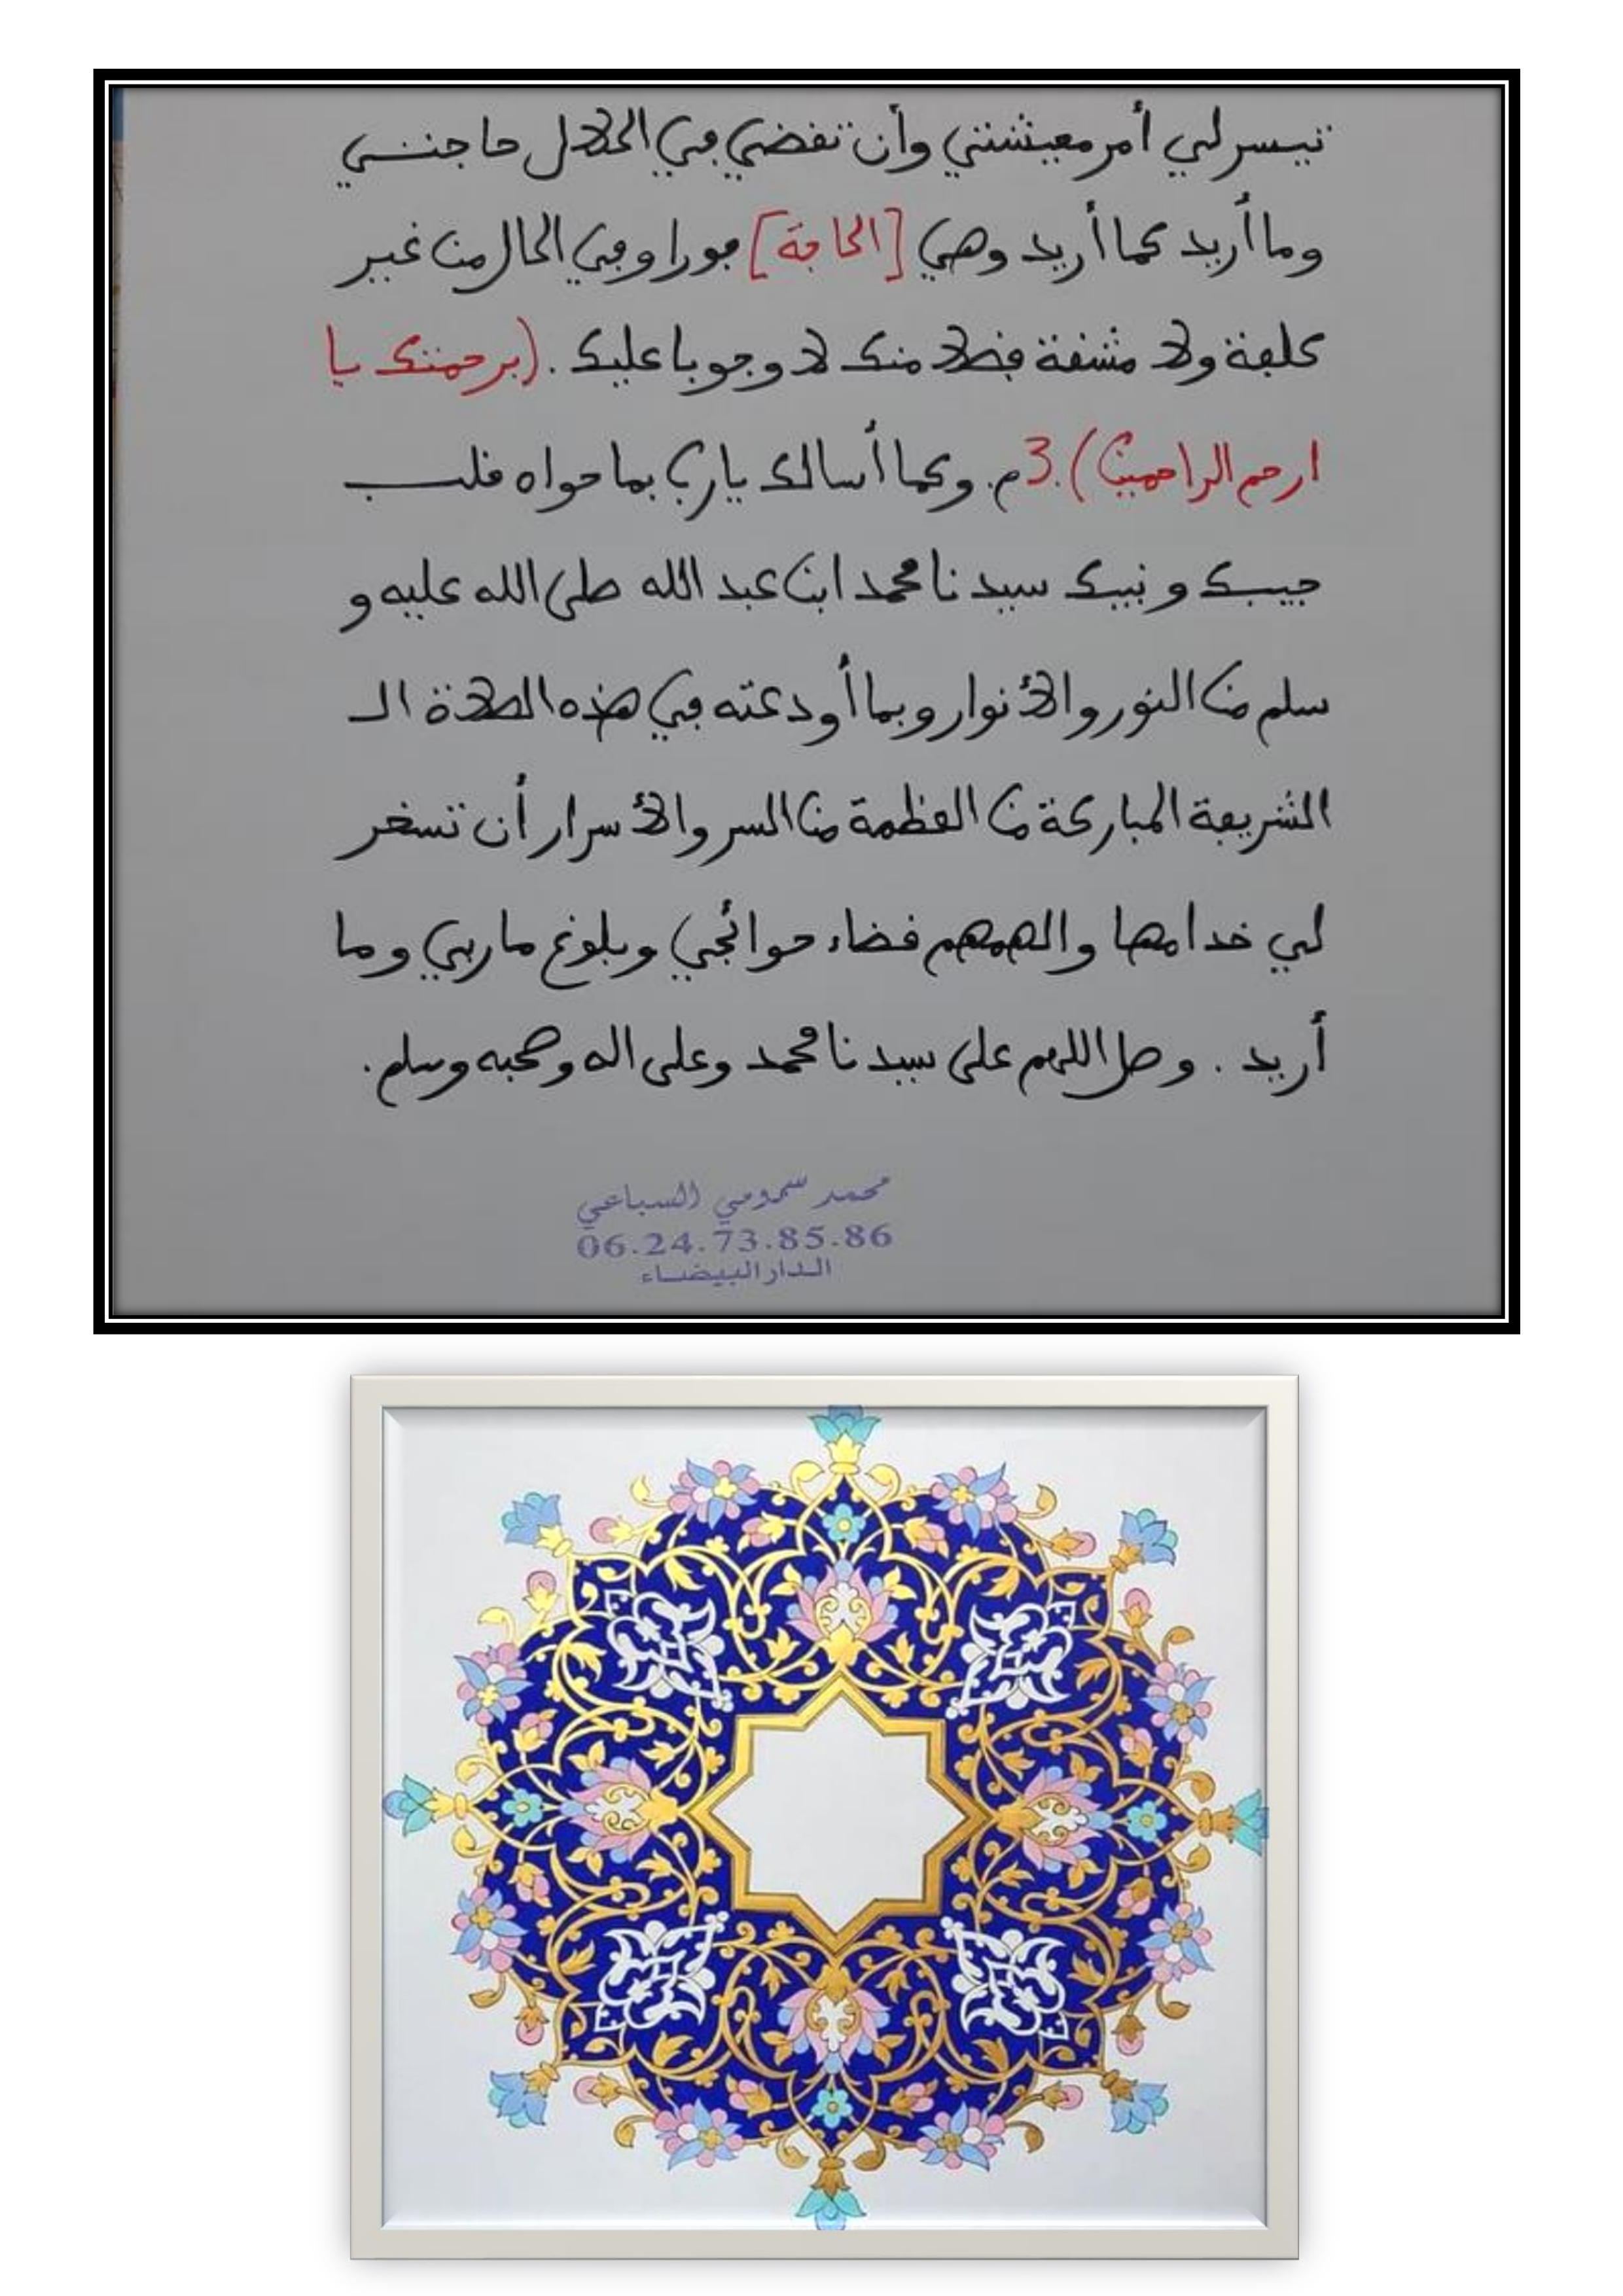 تيسر لي أمر معيشتي وأن تقضي في الحلال حاجتي
وما أريد كما أريد وهي [الحاجة] فورا وفي الحال من غير
كلفة ولا مشقة فضلا منك لا وجوبا عليك . (برحمتك يا
ارحم الراحمين) 3م. وكما أسالك يارب بما حواه قلب
حبيبك و نبيك سيدنا محمد ابن عبد الله صلى الله عليه و
سلم من النور والأنوار وبما أودعته في هذه الصلاة الـ
الشريفة المباركة من العظمة من السر والأسرار أن تسخر
لي خدامها والهمهم قضاء حوائجي وبلوغ ماربي وما
أريد . وصل اللهم على سيدنا محمد وعلى اله وصحبه وسلم.
محمد سمومي السباعي
06.24.73.85.86
الدار البيضاء